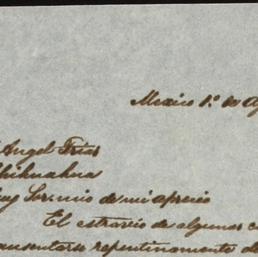 Mexico 1.º de Ag
Angel Frias
Chihuahua
uy Sor. mio de mi aprecio
El estravio de algunas c
ausentarse repentinamente de